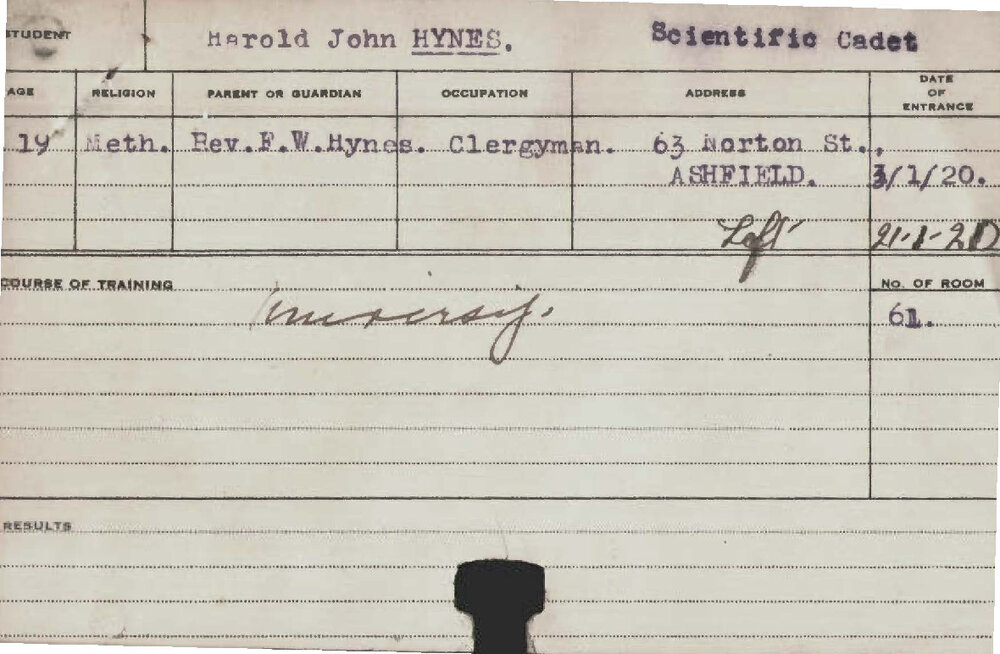 STUDENT Harold John HYNES. Scientific Cadet
AGE RELIGION PARENT OR GUARDIAN OCCUPATION ADDRESS DATE OF ENTRANCE
19 Meth. Rev.F.W.Hynes. Clergyman. 63 Norton St.,
ASHFIELD. /1/20.
Left 21-1-20
COURSE OF TRAINING NO. OF ROOM
University. 61.
RESULTS